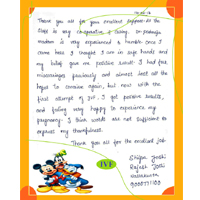 Thank you all for your excellent support. All the
staff is very co-operative & caring. 
madam is very experienced & humble. Once I
came here I thought I am in safe hands and
my belief gave me positive result. I had few
miscarriages previously and almost lost all the
hope to conceive again, but now with the
first attempt of IVF I got positive results,
and feeling very happy to experience my
pregnancy. I think words are not sufficient to
express my thankfulness.
Thank you all for the medical job.
Shilpa Joshi
Rajesh Joshi
IVF